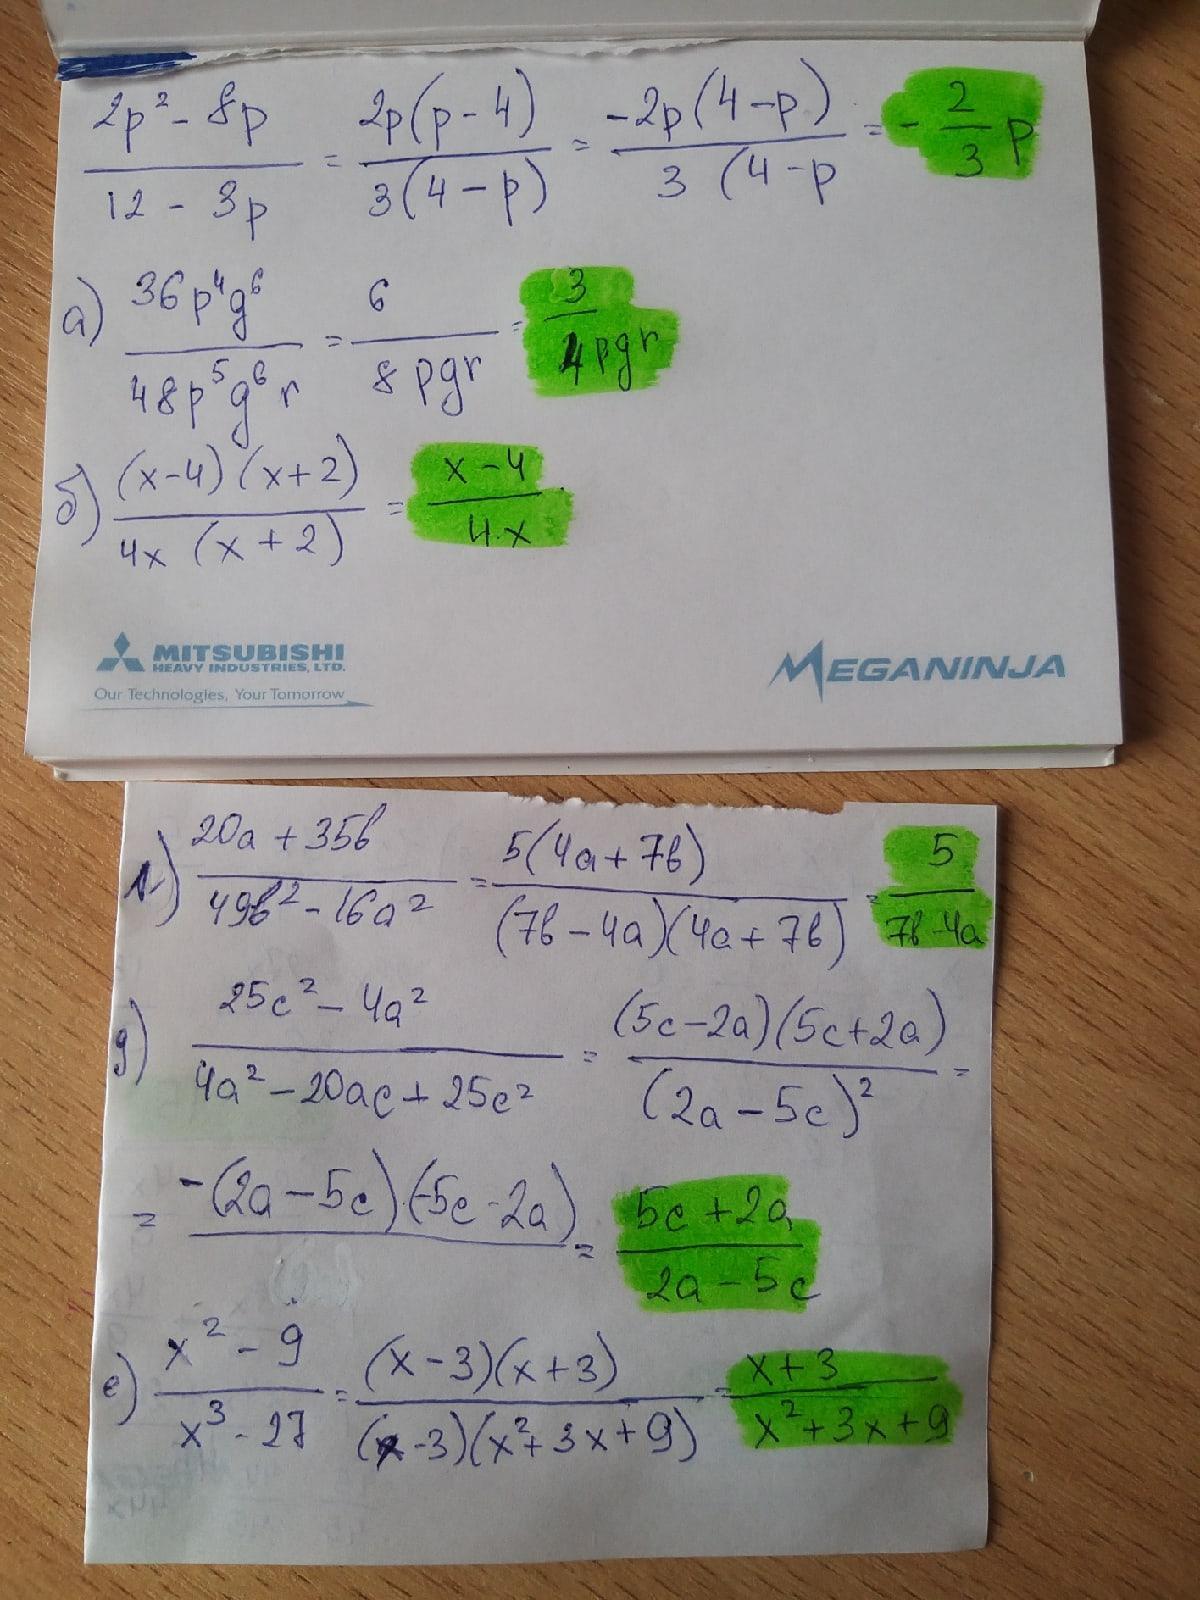 (2p² - 8p)/(12 - 3p) = (2p(p - 4))/(3(4 - p)) = (-2p(4 - p))/(3 (4 - p) = - 2/3 p
а) (36p⁴g⁶)/(48p⁵g⁶r) = 6/(8pgr) = 3/(4pgr)
б) ((x-4)(x+2))/(4x (x+2)) = (x-4)/(4x)
MITSUBISHI
HEAVY INDUSTRIES, LTD.
Our Technologies, Your Tomorrow
MEGANINJA
(20a + 35b)/(49b² - 16a²) = (5(4a + 7b))/((7b - 4a)(4a + 7b)) = 5/(7b - 4a)
g) (25c² - 4a²)/(4a² - 20ac + 25c²) = ((5c - 2a)(5c + 2a))/((2a - 5c)²) =
= -(2a - 5c)(-5c - 2a) = (5c + 2a)/(2a - 5c)
e) (x² - 9)/(x³ - 27) = ((x - 3)(x + 3))/((x - 3)(x² + 3x + 9)) = (x + 3)/(x² + 3x + 9)